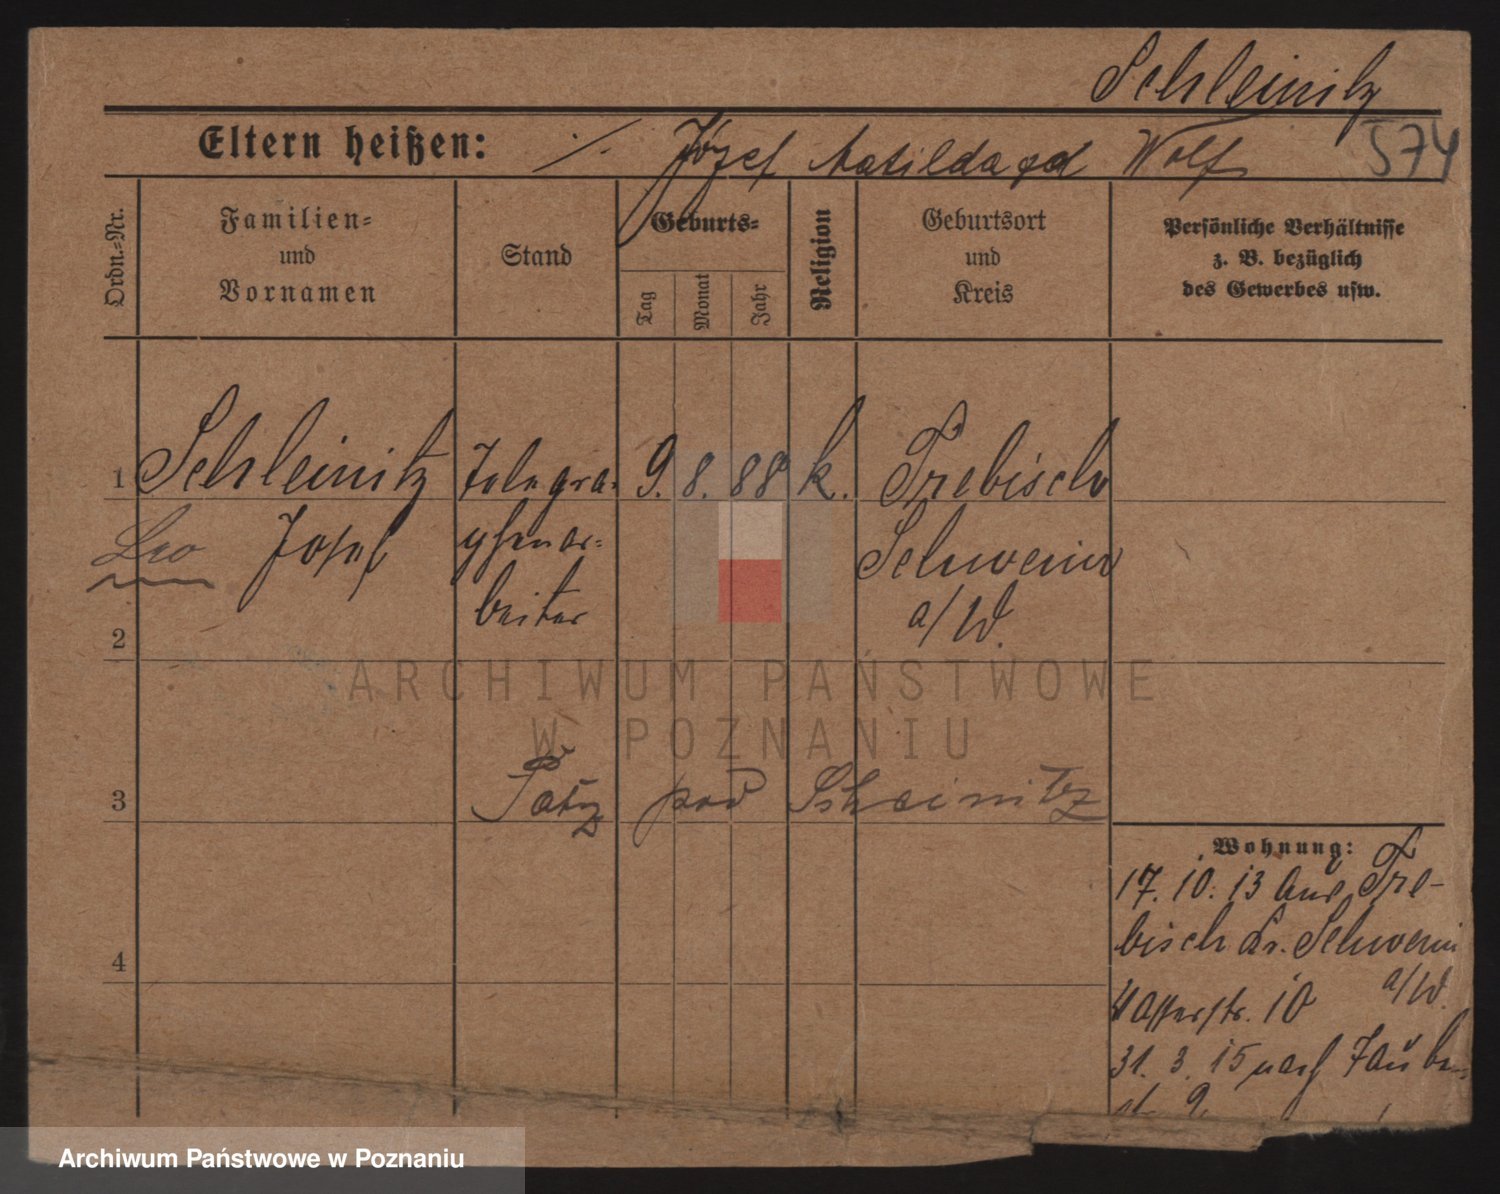 Schleinitz
Eltern heißen: ./. Józef Matilda gd Wolf 574
Ordn.-Nr.
Familien-
und
Vornamen
Stand
Geburts-
Tag
Monat
Jahr
Religion
Geburtsort
und
Kreis
Persönliche Verhältnisse
z. B. bezüglich
des Gewerbes usw.
1 Schleinitz Telegra- 9. 8. 88 k. Trebisch
Leo Josef phenar- Schwerin
2 beiter a/W.
3 pod
4
Wohnung:
17. 10. 13 aus Tre-
bisch Kr. Schwerin
a/W.
Wasserstr. 10
31. 3. 15 nach Taube-
ARCHIWUM PAŃSTWOWE
W POZNANIU
Archiwum Państwowe w Poznaniu